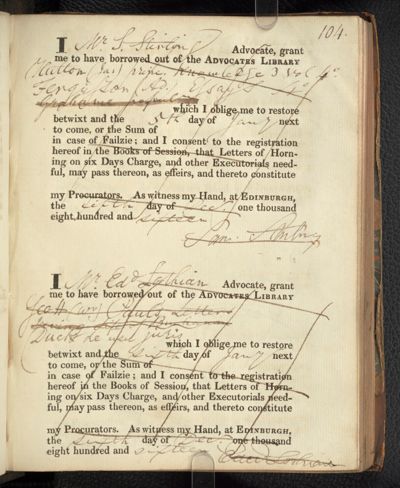 104.
I Mr. S. Stirling Advocate, grant
me to have borrowed out of the ADVOCATES LIBRARY
Hutton (Jas) Knowledge 3 vols 4o
Ferguson (Ad.) Essay
which I oblige me to restore
betwixt and the 5th day of Jany next
to come, or the Sum of
in case of Failzie; and I consent to the registration
hereof in the Books of Session, that Letters of Horn-
ing on six Days Charge, and other Executorials need-
ful, may pass thereon, as effeirs, and thereto constitute
my Procurators. As witness my Hand, at EDINBURGH,
the fifth day of Dec. one thousand
eight hundred and sixteen
Sam. Stirling
I Mr. Edd Lothian Advocate, grant
me to have borrowed out of the ADVOCATES LIBRARY
Scott (Wr) Pauls Letters
which I oblige me to restore
betwixt and the Sixth day of Jany next
to come, or the Sum of
in case of Failzie; and I consent to the registration
hereof in the Books of Session, that Letters of Horn-
ing on six Days Charge, and other Executorials need-
ful, may pass thereon, as effeirs, and thereto constitute
my Procurators. As witness my Hand, at EDINBURGH,
the sixth day of Dec. one thousand
eight hundred and sixteen Edwd Lothian